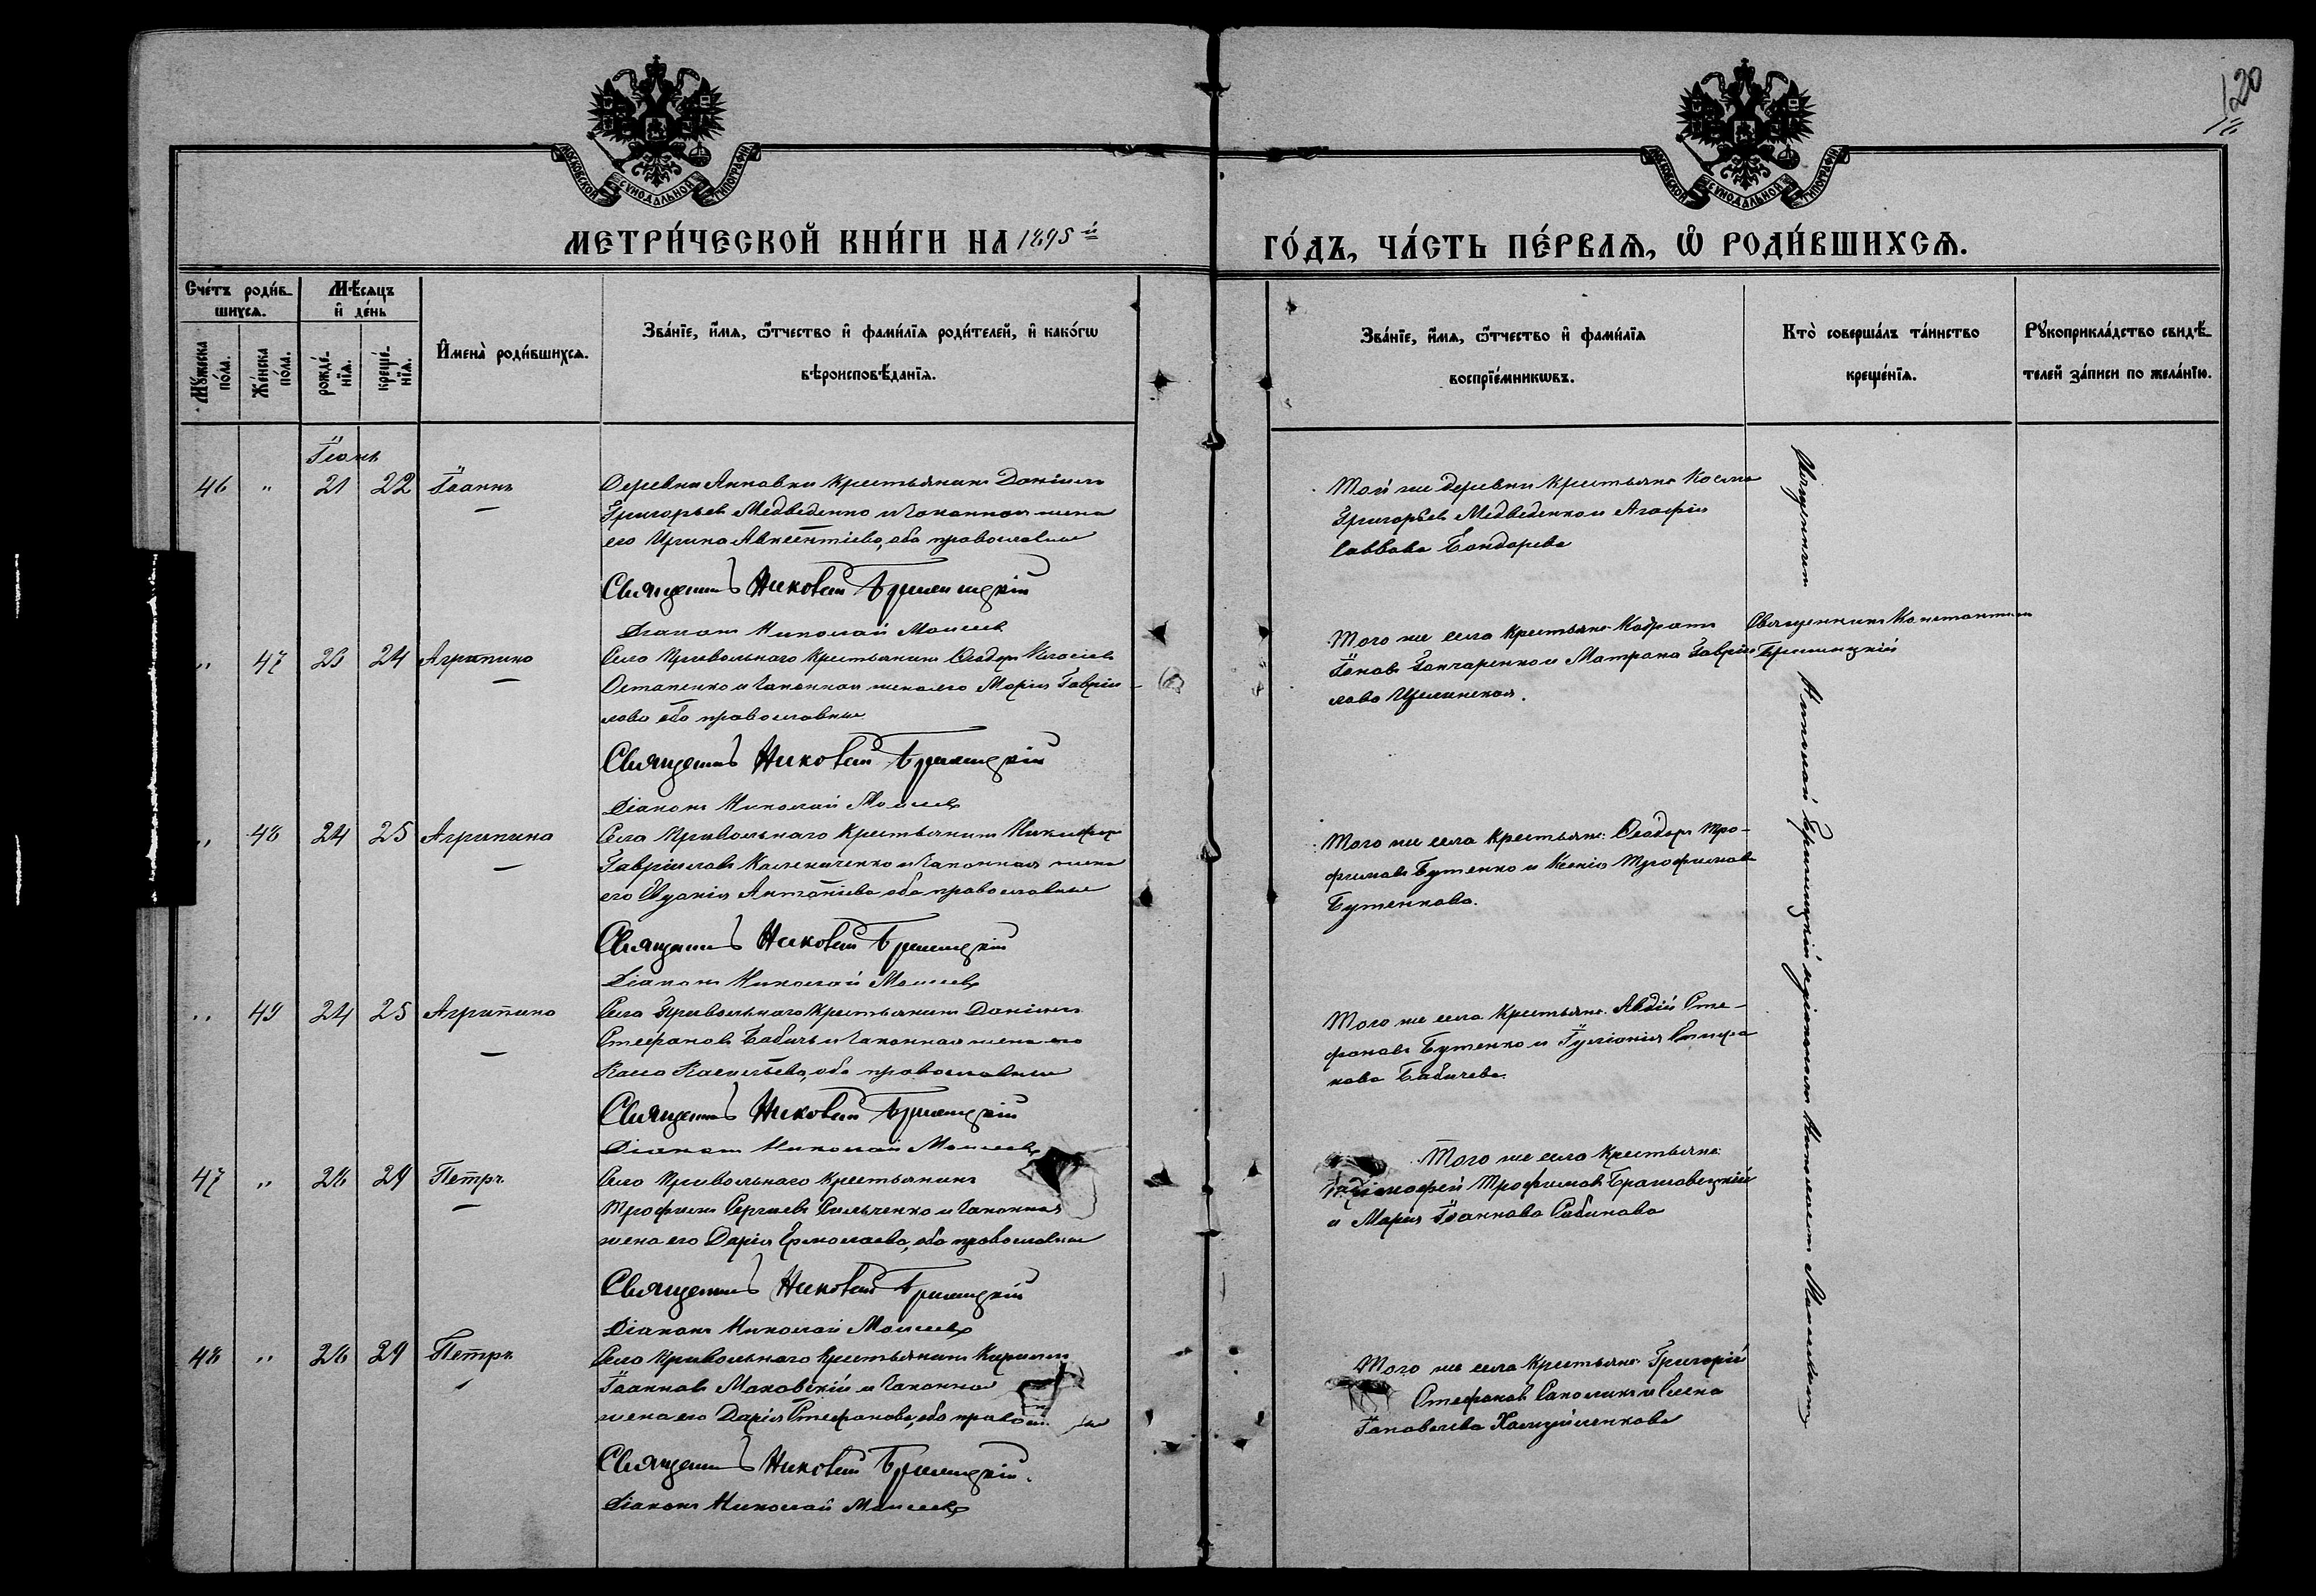 120
МОСКОВСКОЙ СѴНОДАЛЬНОЙ ТИПОГРАФІИ
МОСКОВСКОЙ СѴНОДАЛЬНОЙ ТИПОГРАФІИ
МЕТРИ́ЧЕСКОЙ КНИ́ГИ НА 1895й
ГО́ДЪ, ЧА́СТЬ ПЕ́РВАЯ, Ѡ РОДИ́ВШИХСЯ.
Сче́тъ роди́в-
шихся.
Му́жеска по́ла.
Же́нска по́ла.
Мѣ́сяцъ
и де́нь
рожде́-
нїя.
креще́-
нїя.
Имена̀ роди́вшихся.
Зва́нїе, и́мя, ѻ́тчество и фами́лїя роди́телей, и како́гѡ
вѣроисповѣ́данїя.
Зва́нїе, и́мя, ѻ́тчество и фами́лїя
воспрїе́мникѡвъ.
Кто̀ соверша́лъ та́инство
креще́нїя.
Рꙋкоприкла́дство свидѣ́-
телей за́писи по жела́нїю.
Іюнь
46 " 21 22 Іоаннъ
Деревни Анновки крестьянинъ Даніилъ
Григорьевъ Медведенко и законная жена
его Ирина Авксентіева, оба православные
Священникъ Яковъ Бримицкій
Діаконъ Николай Моисеев
Той же деревни крестьяне Косма
Григорьевъ Медведенко и Агафія
Саввова Бондарева
" 47 23 24 Агрипина
Села Привольнаго крестьянинъ Ѳеодоръ
Остапенко и законная жена его Марія Гаврии-
лова оба православные
Священникъ Яковъ Бримицкій
Діаконъ Николай Моисеев
Того же села крестьяне Кодратъ
Іоновъ Гончаренко и Матрона Гаврии
лова
Священникъ Константинъ
Бримицкій
" 48 24 25 Агрипина
Села Привольнаго крестьянинъ Никифоръ
Гавріиловъ Калениченко и законная жена
его Евдокія Антоніева оба православные
Священникъ Яковъ Бримицкій
Діаконъ Николай Моисеев
Того же села крестьяне: Ѳеодоръ Тро-
фимовъ Бутенко и Ксенія Трофимова
Бутенкова.
" 49 24 25 Агрипина
Села Привольнаго крестьянинъ Даніилъ
Стефановъ Бабичъ и законная жена его
Васильева, оба православные
Священникъ Яковъ Бримицкій
Діаконъ Николай Моисеев
Того же села крестьяне: Авдій Сте-
фановъ Бутенко и Іуліанія Стефа
нова Бабичева.
47 " 26 29 Петръ
Села Привольнаго крестьянинъ
Трофимъ Сергіевъ Сильченко и законная
жена его Дарія Ермолаева, оба православные
Священникъ Яковъ Бримицкій
Діаконъ Николай Моисеев
Того же села крестьяне:
Тимофей Трофимовъ
и Марія Іоаннова Сабинова
48 " 26 29 Петръ
Села Привольнаго крестьянинъ Кириллъ
Іоанновъ Маковскій и законная
жена его Дарія Стефанова, оба
Священникъ Яковъ Бримицкій.
Діаконъ Николай Моисеев
Того же села крестьяне: Григорій
Стефановъ и Елена
Священникъ
Бримицкій и діаконъ Николай Моисеевъ